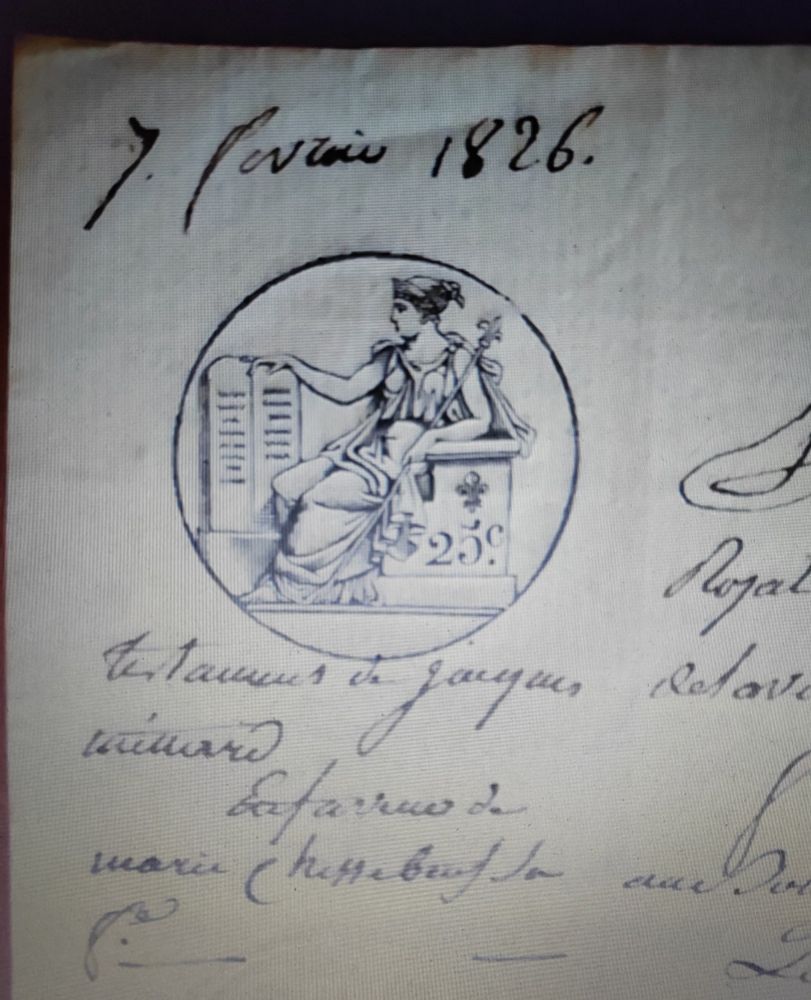 7. fevrier 1826.
25c.
Royal
testament de jacques
menard
En faveur de
marie Chesseboeuf sa
f.e